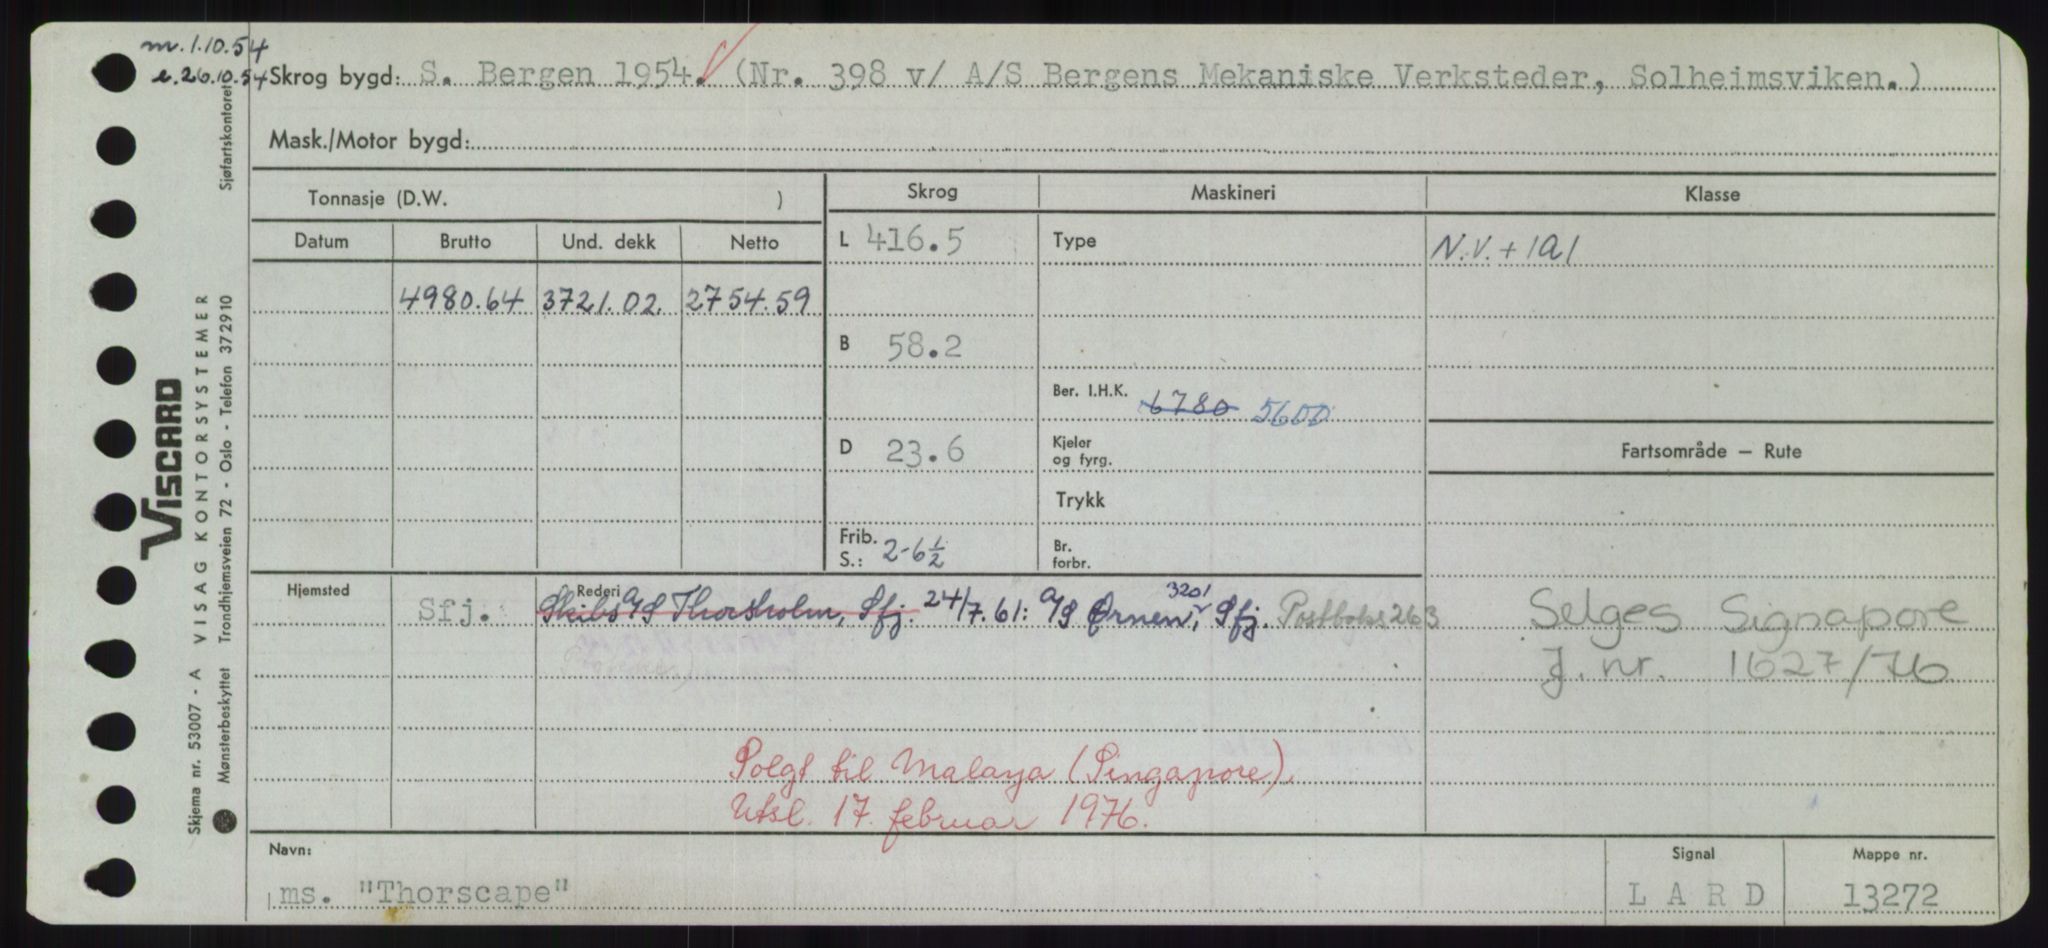 m. 1.10.54
e. 26.10.54
Skrog bygd: S. Bergen 1954. (Nr. 398 v/ A/S Bergens Mekaniske Verksteder, Solheimsviken.)
Mask./Motor bygd:
Tonnasje (D.W. )
Skrog Maskineri Klasse
Datum Brutto Und. dekk Netto
L 416.5 Type N.V. + 1A1
4980.64 3721.02. 2754.59
B 58.2
Ber. I.H.K. 6780 5600
D 23.6 Kjeler og fyrg.
Fartsområde — Rute
Trykk
Frib. S.: 2-6½ Br. forbr.
Hjemsted Rederi
3201
Sfj. Skibs A/S Thorsholm, Sfj. 24/7.61: A/S Ørnen, Sfj. Postboks 263
Selges Signapore
J. nr. 1627/76
Solgt til Malaya (Singapore).
Utsl. 17. februar 1976.
Navn: Signal Mappe nr.
ms. "Thorscape" L A R D 13272
VISCARD
Skjema nr. 53007 - A VISAG KONTORSYSTEMER
Mønsterbeskyttet Trondhjemsveien 72 - Oslo - Telefon 372910 Sjøfartskontoret